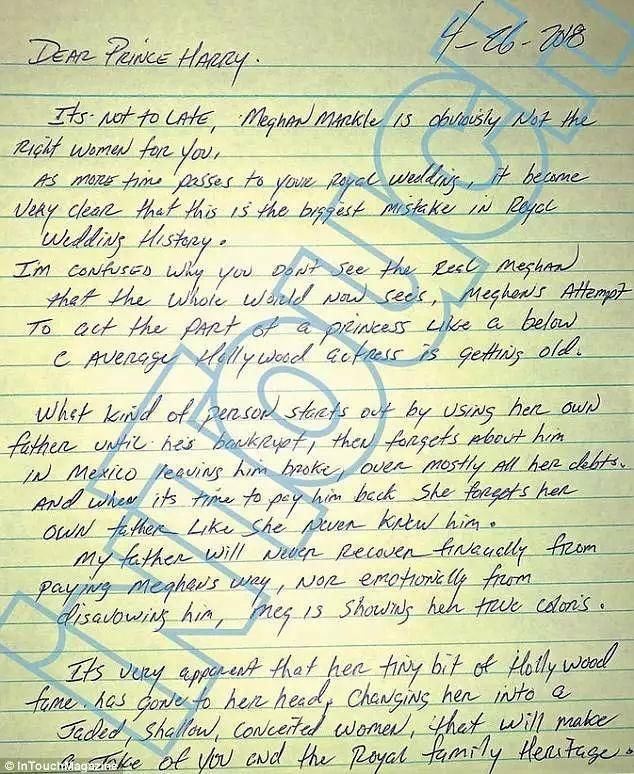 4-26-2018
DEAR PRINCE HARRY.
ITS NOT TO LATE, MEGHAN MARKLE IS obviously Not the
Right women for you.
AS MORE time passes to your Royal Wedding, it become
VERY clear that this is the biggest mistake in Royal
Wedding History.
I'M CONFUSED Why you DON'T See the Real Meghan
that the whole world Now sees, Meghan's Attempt
To act the PART of a princess Like a below
C AVERAGE Hollywood actress is getting old.
What kind of person starts out by using her own
father until he's bankrupt, then forgets about him
IN Mexico leaving him broke, over mostly all her debts.
AND when its time to pay him back She forgets her
OWN father Like She Never KNEW him.
My father will Never Recover financially from
paying Meghans way, NOR emotionally from
disavowing him, Meg is showing her true colors.
It's very apparent that her tiny bit of Hollywood
fame has gone to her head, Changing her into a
Jaded, Shallow, conceited women, that will make
a Joke of you and the Royal family Heritage.
InTouch
© InTouchMagazine